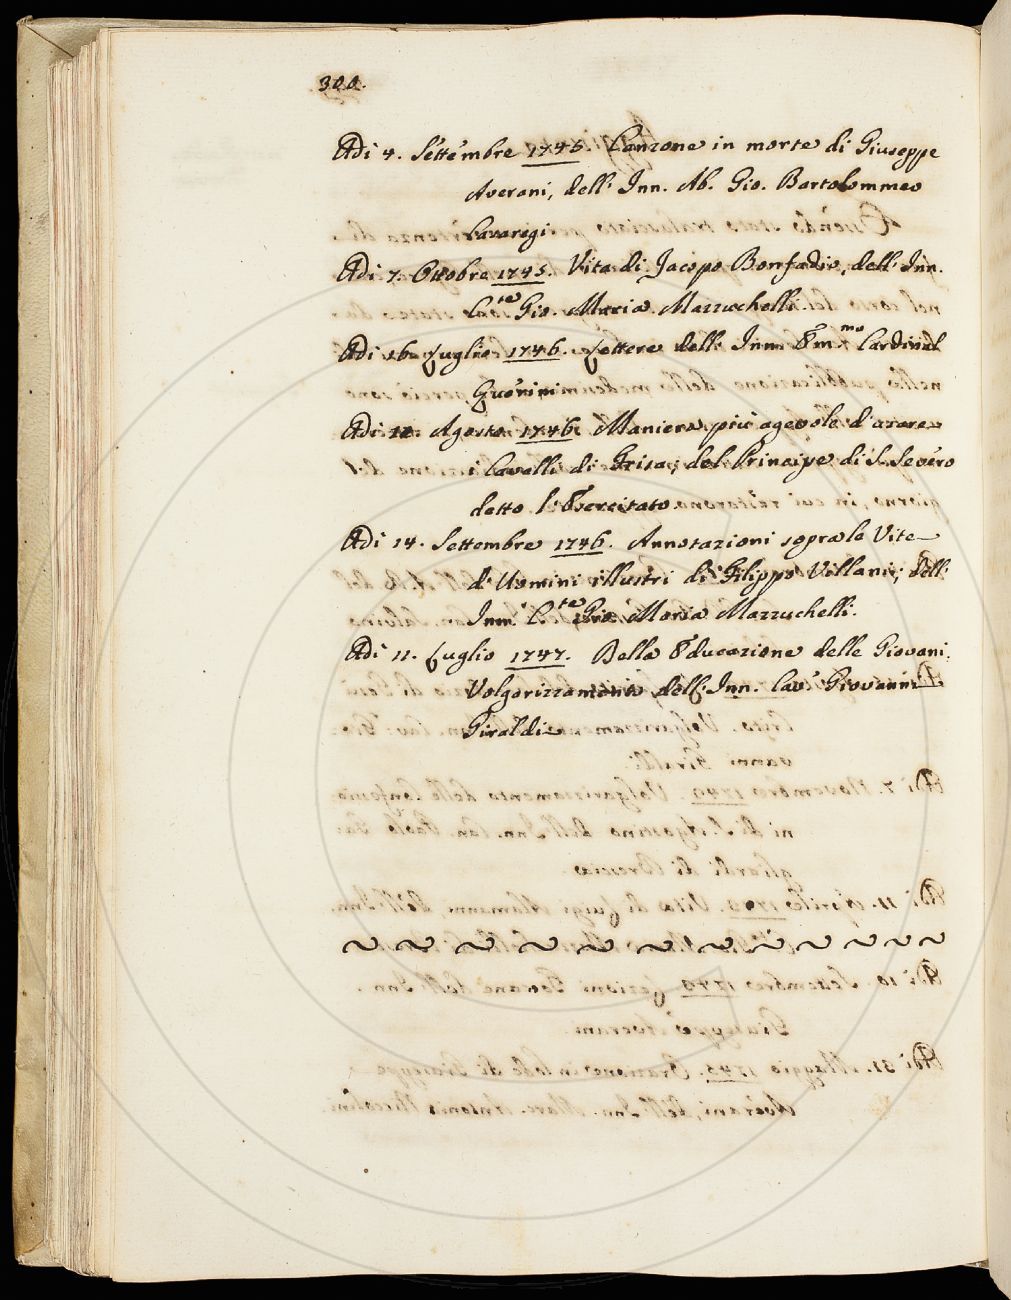 300.
Adì 4. Settembre 1745. Canzone in morte di Giuseppe
Averani, dell' Inn. Ab. Gio. Bartolommeo
Casaregi
Adì 7. Ottobre 1745. Vita di Jacopo Bonfadio, dell' Inn.
C.te Gio. Maria Mazzuchelli.
Adì 16. Luglio 1746. Lettere dell' Inn. Em.mo Cardinal
Querini
Adì Agosto 1746. Maniera più agevole d'
i Cavalli di Frisa, del Principe di S. Severo
detto l'Esercitato
Adì 14. Settembre 1746. Annotazioni sopra le Vite
d'Uomini illustri di Filippo Villani, dell'
Inn. C.te Gio. Maria Mazzuchelli.
Adì 11. Luglio 1747. Bella Educazione delle Giovani.
Volgarizzamento dell' Inn. Cav. Giovanni
Giraldi